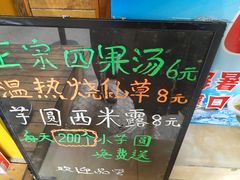 正宗四果汤6元
温热烧仙草8元
芋圆西米露8元
每天200个小芋圆
免费送
欢迎品尝